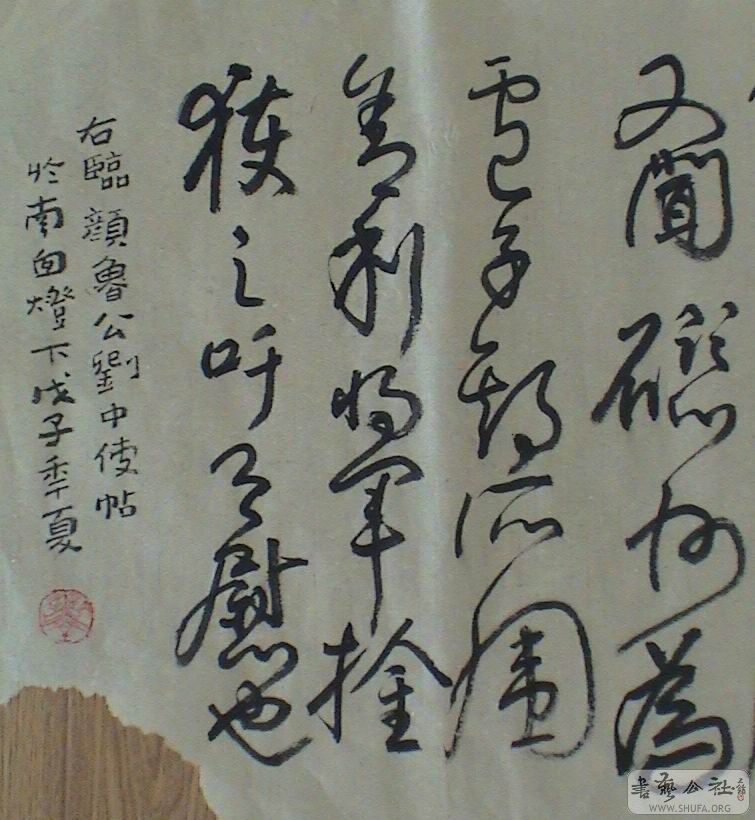 又聞磁州為
盧子期所圍
舍利將軍擒
獲之吁足慰也
右臨顏魯公劉中使帖
於南囱燈下戊子季夏
書藝公社
WWW.SHUFA.ORG